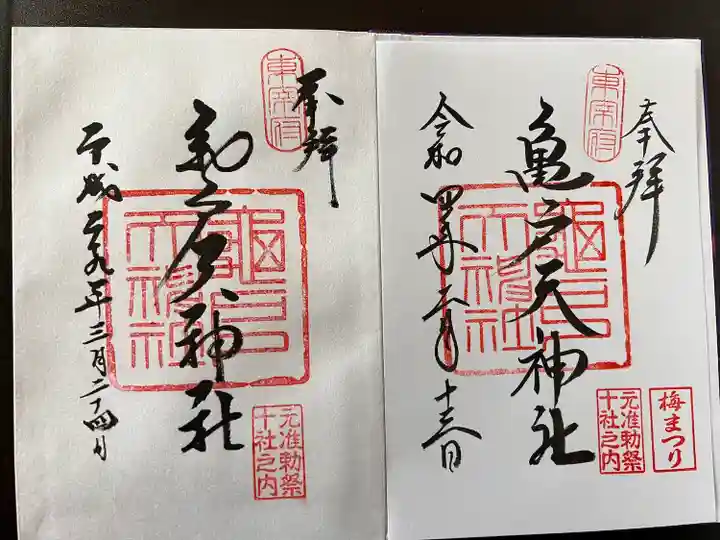 奉拝
東宰府
亀戸天神社
龜戸
天神社
令和四年二月十三日
梅まつり
元准勅祭
十社之内
奉拝
東宰府
亀戸天神社
龜戸
天神社
平成二九年三月二十四日
元准勅祭
十社之内